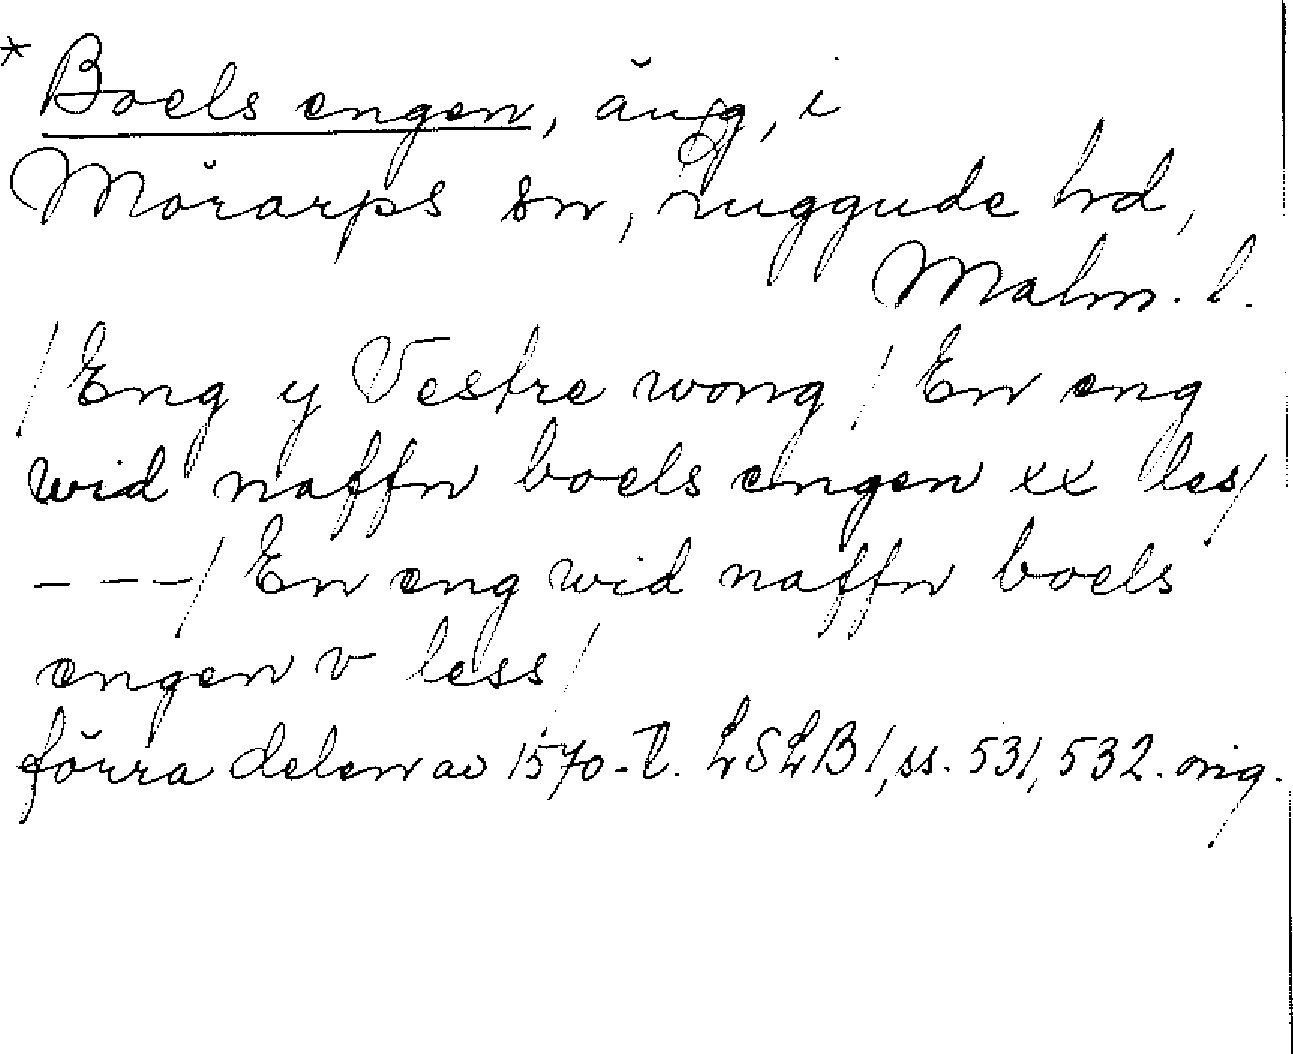 * Boels engen, äng, i
Mörarps sn, Luggude hd,
Malm. l.
/ Eng y Vestre wong / En eng
wid naffn boels engen xx les/
- - - / En eng wid naffn boels
engen v less /
förra delen av 1570-t. LSLB 1, ss. 531, 532. orig.